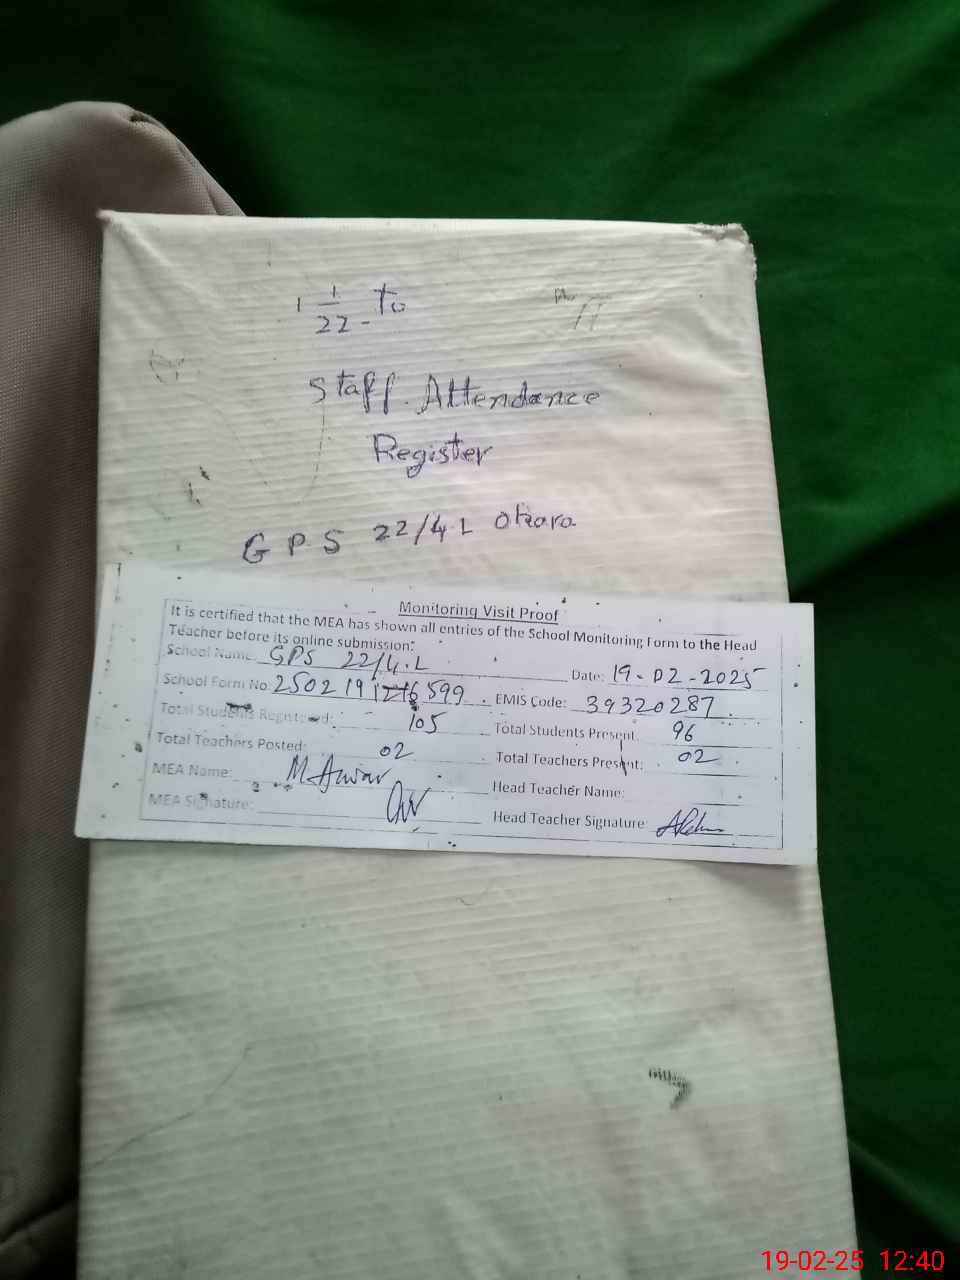 1 1/22 - To
Staff. Attendance
Register
GPS 22/4 L Okara
Monitoring Visit Proof
It is certified that the MEA has shown all entries of the School Monitoring Form to the Head
Teacher before its online submission.
School Name: GPS 22/4.L Date: 19-02-2025
School Form No: EMIS Code: 39320287
Total Students Registered: 105 Total Students Present: 96
Total Teachers Posted: 02 Total Teachers Present: 02
MEA Name: M. Anwar Head Teacher Name:
MEA Signature: Head Teacher Signature:
19-02-25 12:40